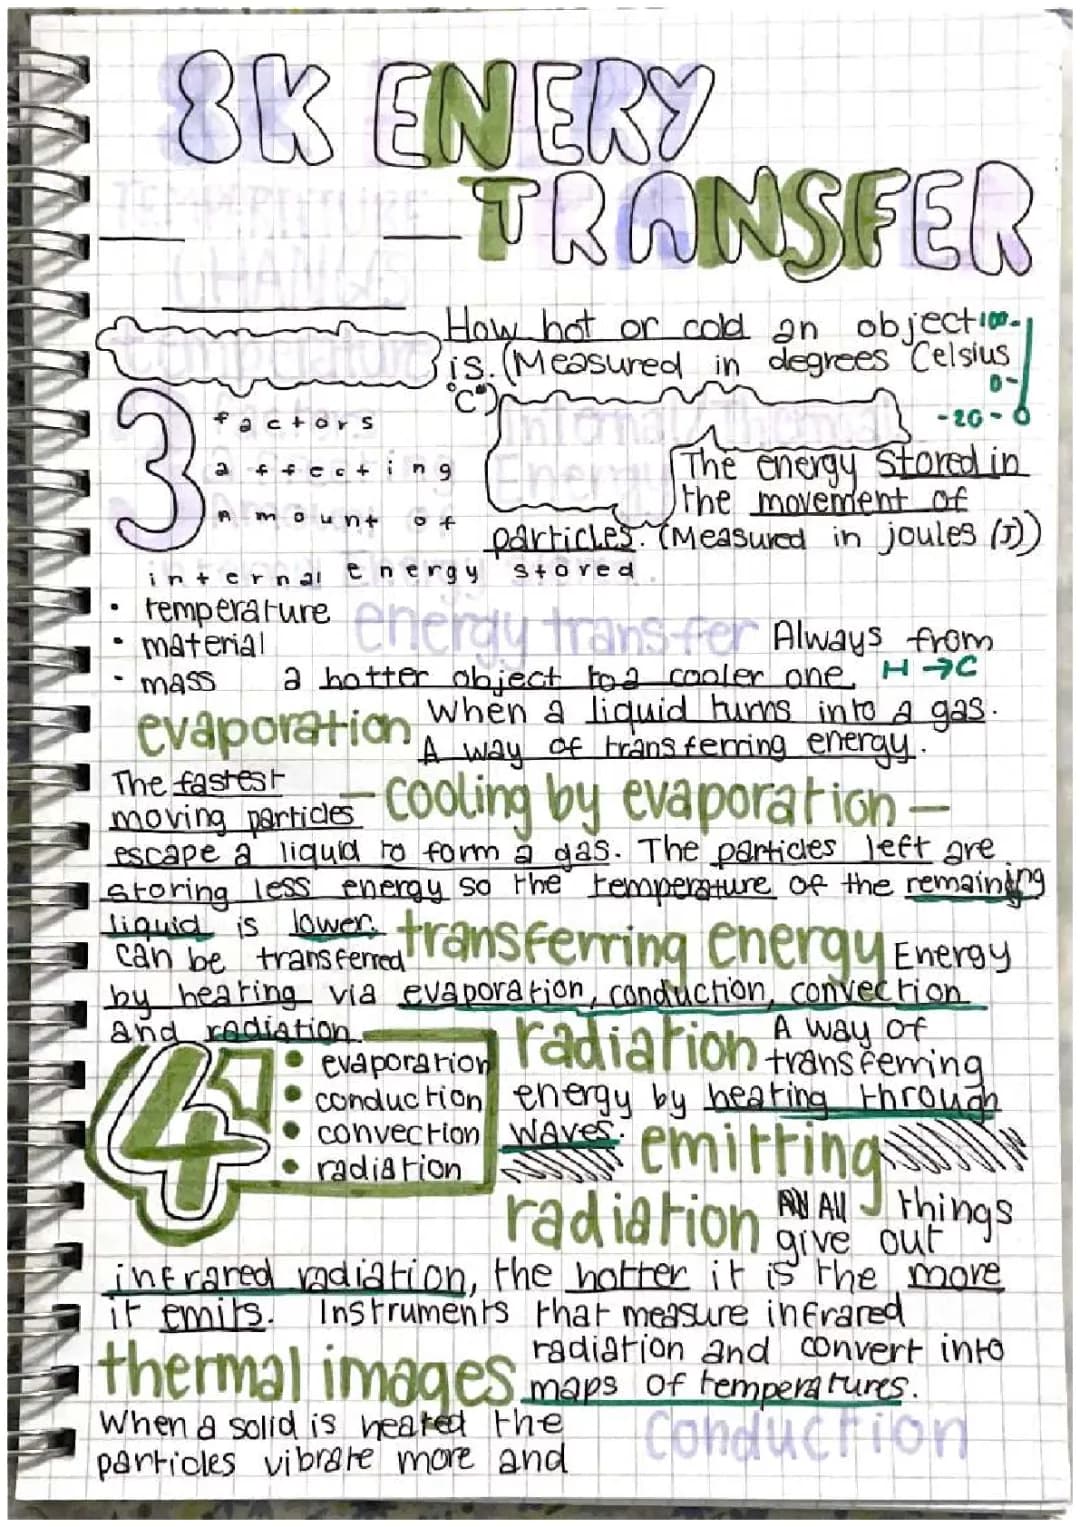 8K ENERY
TRANSFER
TEMPERATURE
CHANGES
temperature
How hot or cold an object
is. (Measured in degrees Celsius
°C°)
100-
0-
-20-
3 factors
affecting
Amount of
internal energy stored.
Internal/Thermal
Energy
The energy stored in
the movement of
particles. (Measured in joules (J))
• temperature
• material
• mass
energy transfer Always from
a hotter object to a cooler one. H → C
evaporation When a liquid turns into a gas.
A way of transferring energy.
- cooling by evaporation -
The fastest
moving particles
escape a liquid to form a gas. The particles left are
storing less energy so the temperature of the remaining
liquid is lower.
transferring energy Energy
can be transferred
by heating via evaporation, conduction, convection
and radiation.
4
• evaporation
• conduction
• convection
• radiation
radiation A way of
transferring
energy by heating through
waves.
emitting
radiation All things
give out
infrared radiation, the hotter it is the more
it emits. Instruments that measure infrared
thermal images radiation and convert into
maps of temperatures.
conduction
When a solid is heated the
particles vibrate more and